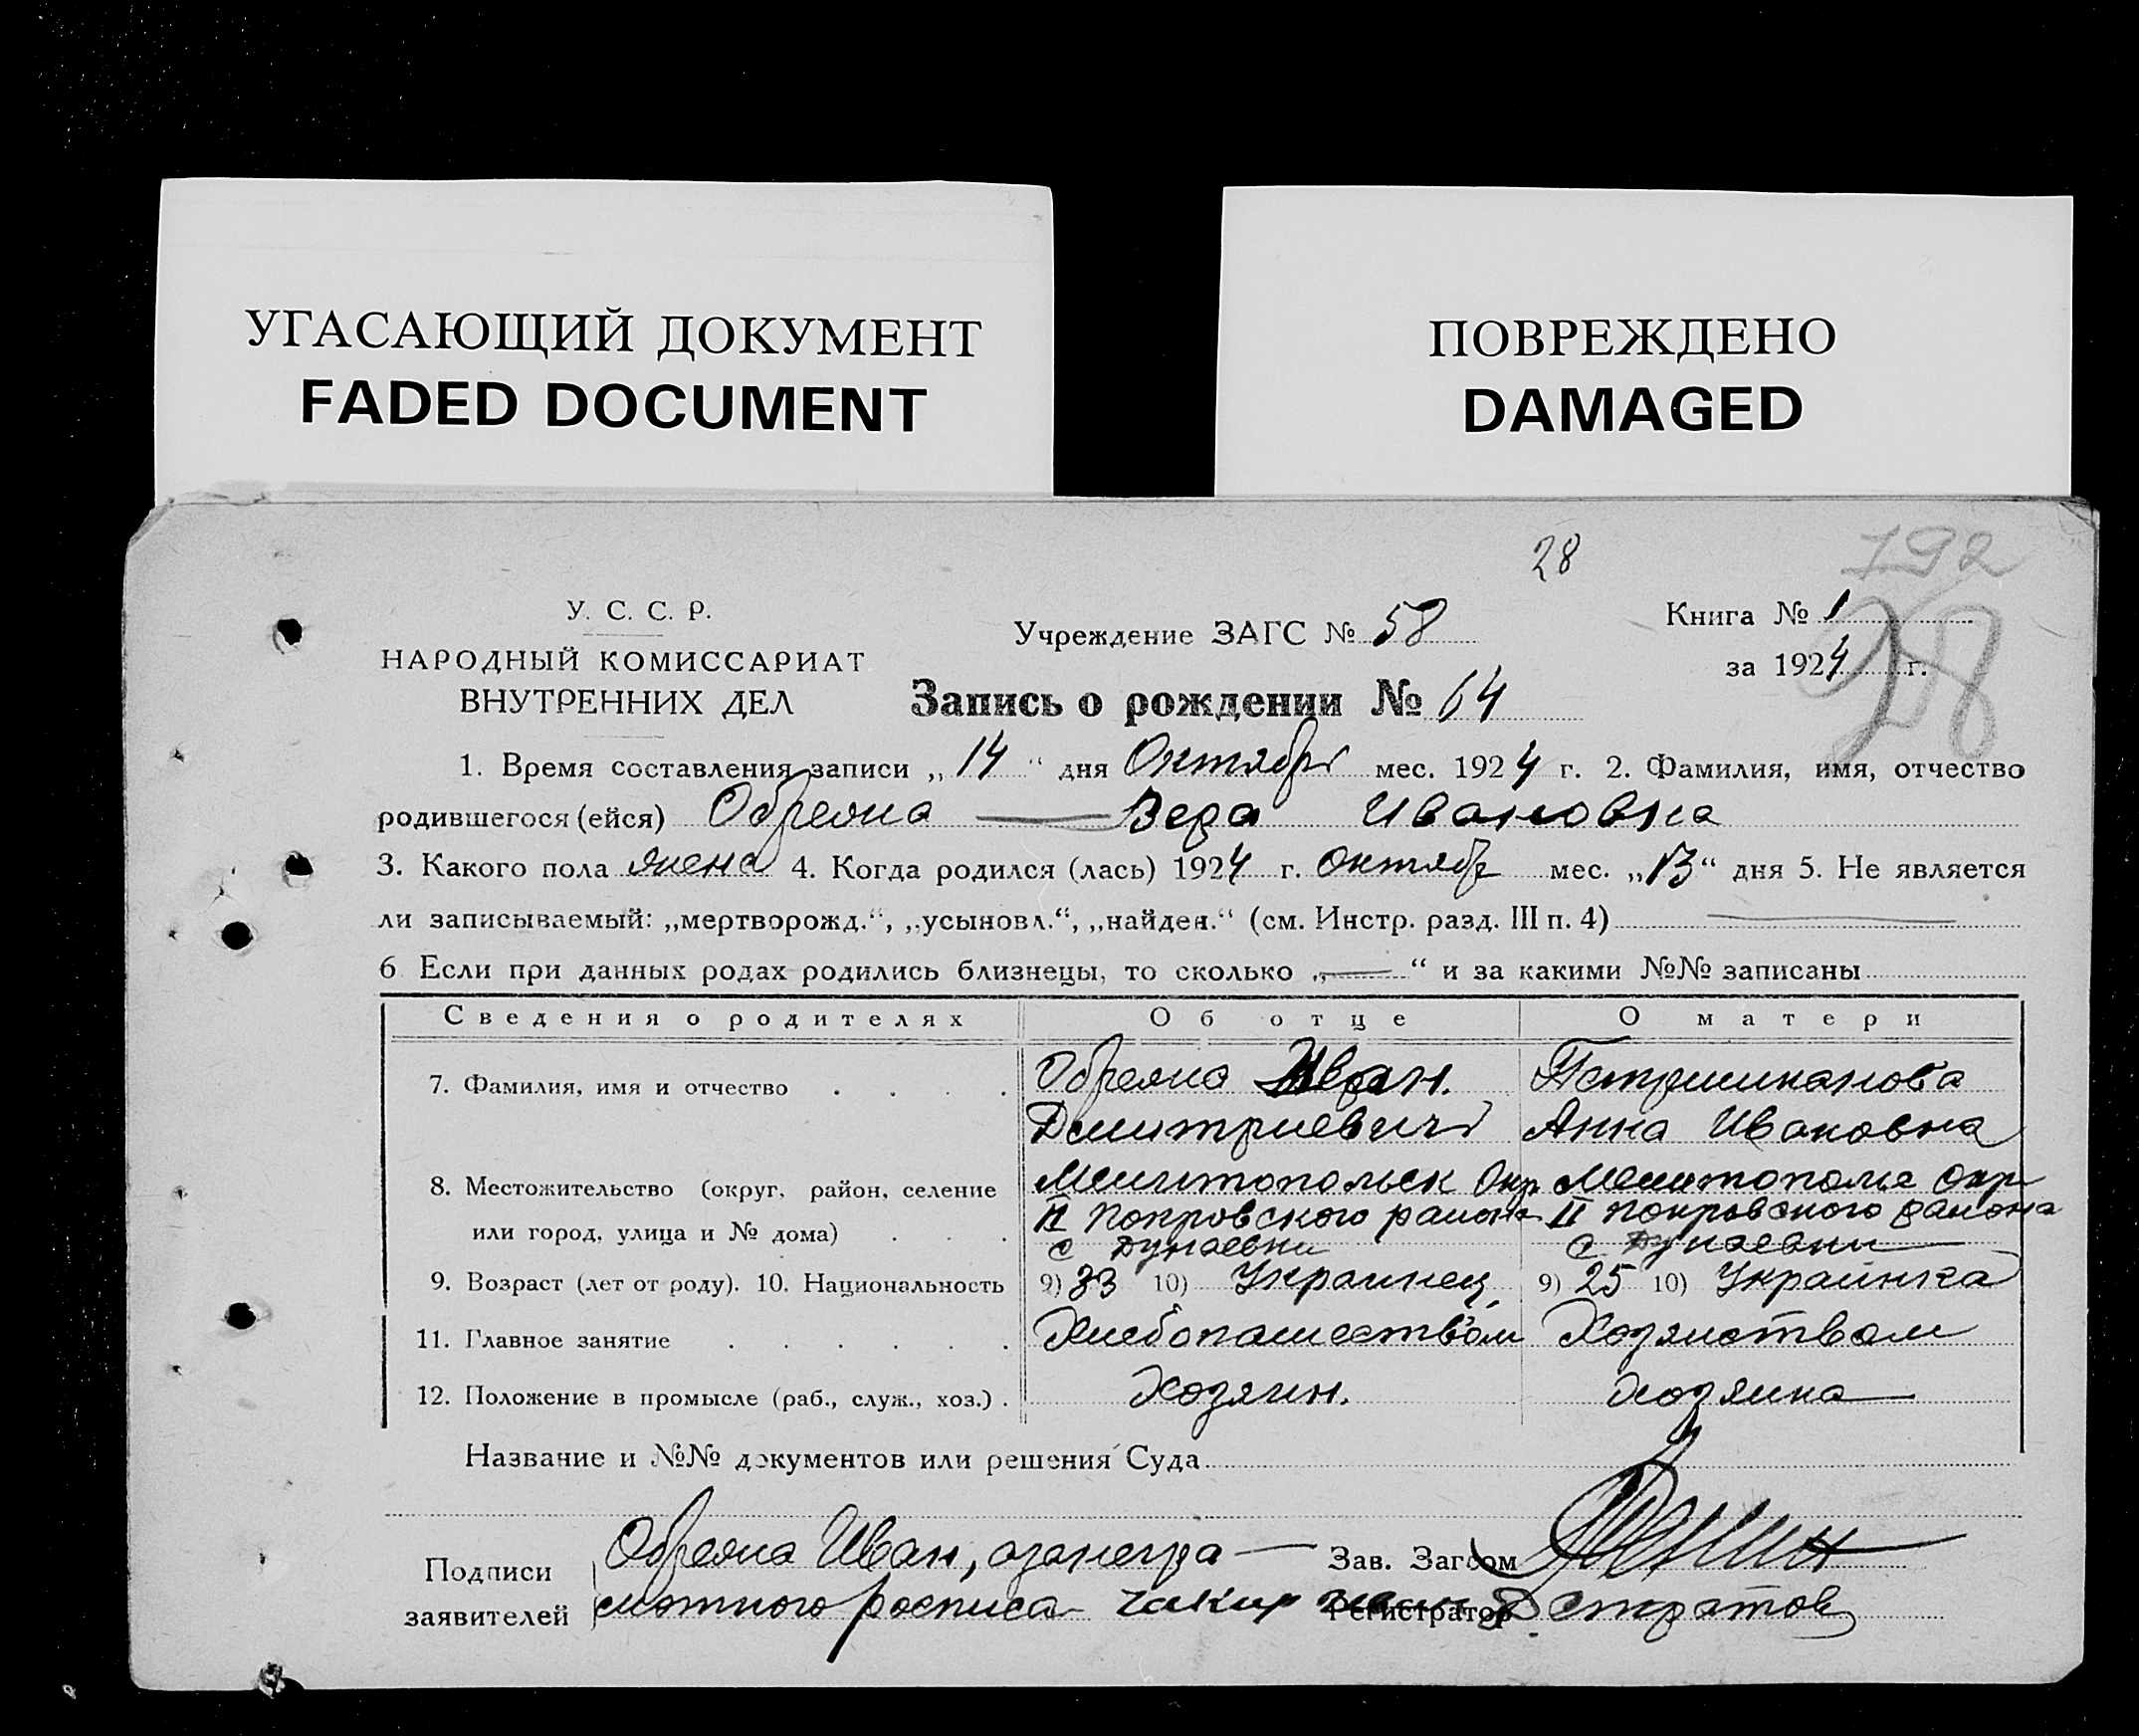 УГАСАЮЩИЙ ДОКУМЕНТ
FADED DOCUMENT
ПОВРЕЖДЕНО
DAMAGED
28
192
28
У. С. С. Р.
НАРОДНЫЙ КОМИССАРИАТ
ВНУТРЕННИХ ДЕЛ
Учреждение ЗАГС № 58
Книга № 1
за 1924 г.
Запись о рождении № 64
1. Время составления записи „14“ дня Октября мес. 1924 г. 2. Фамилия, имя, отчество
родившегося (ейся) Обреяна — Вера Ивановна
3. Какого пола жена 4. Когда родился (лась) 1924 г. октябр мес. „13“ дня 5. Не является
ли записываемый: „мертворожд.“, „усыновл.“, „найден.“ (см. Инстр. разд. III п. 4)
6 Если при данных родах родились близнецы, то сколько „—“ и за какими №№ записаны
Сведения о родителях Об отце О матери
7. Фамилия, имя и отчество . . . . Обреяно Иван. Петришканова
Дмитриевич Анна Ивановна
8. Местожительство (округ, район, селение Мелитопольск Окр. Мелитополье окр
или город, улица и № дома) . . . II покровского района II покровского района
с Дунаевки с Дунаевки
9. Возраст (лет от роду). 10. Национальность 9) 33 10) Украинец 9) 25 10) Украинка
11. Главное занятие . . . . . . Хлебопашеством Хозяиством
12. Положение в промысле (раб., служ., хоз.) . Хозяин. Хозяина
Название и №№ документов или решения Суда
Подписи Обреяно Иван, Зав. Загсом
заявителей росписа Регистратор Естратов